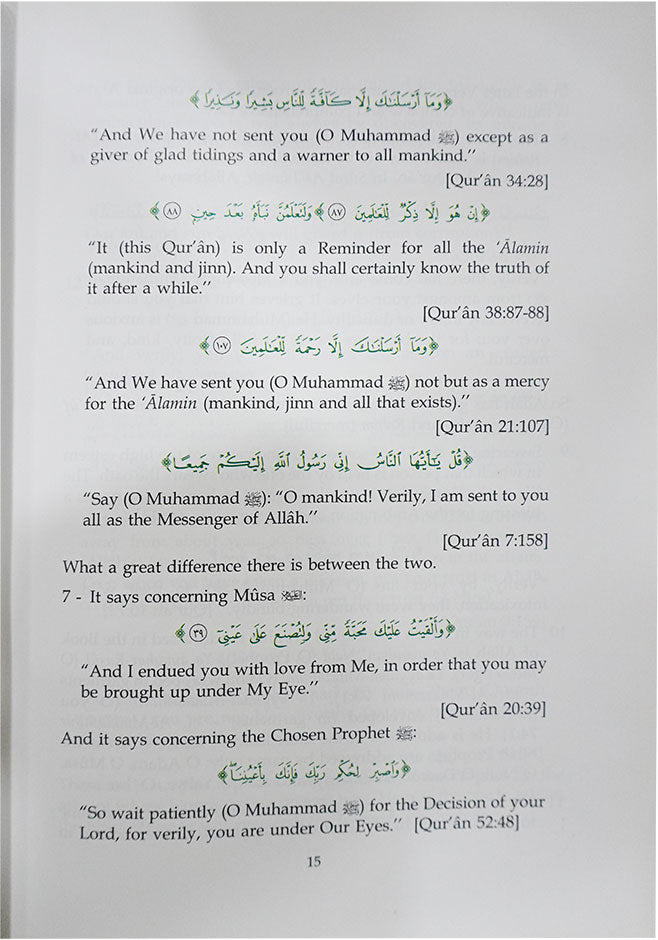 ﴿وَمَا أَرْسَلْنَٰكَ إِلَّا كَآفَّةً لِّلنَّاسِ بَشِيرًا وَنَذِيرًا﴾
“And We have not sent you (O Muhammad ﷺ) except as a
giver of glad tidings and a warner to all mankind.”
[Qur’ân 34:28]
﴿إِنْ هُوَ إِلَّا ذِكْرٌ لِّلْعَٰلَمِينَ ٨٧﴾ ﴿وَلَتَعْلَمُنَّ نَبَأَهُۥ بَعْدَ حِينٍۭ ٨٨﴾
“It (this Qur’ân) is only a Reminder for all the ‘Ālamin
(mankind and jinn). And you shall certainly know the truth of
it after a while.”
[Qur’ân 38:87-88]
﴿وَمَآ أَرْسَلْنَٰكَ إِلَّا رَحْمَةً لِّلْعَٰلَمِينَ ١٠٧﴾
“And We have sent you (O Muhammad ﷺ) not but as a mercy
for the ‘Ālamin (mankind, jinn and all that exists).”
[Qur’ân 21:107]
﴿قُلْ يَٰٓأَيُّهَا ٱلنَّاسُ إِنِّى رَسُولُ ٱللَّهِ إِلَيْكُمْ جَمِيعًا﴾
“Say (O Muhammad ﷺ): “O mankind! Verily, I am sent to you
all as the Messenger of Allâh.”
[Qur’ân 7:158]
What a great difference there is between the two.
7 - It says concerning Mûsa:
﴿وَأَلْقَيْتُ عَلَيْكَ مَحَبَّةً مِّنِّى وَلِتُصْنَعَ عَلَىٰ عَيْنِىٓ ٣٩﴾
“And I endued you with love from Me, in order that you may
be brought up under My Eye.”
[Qur’ân 20:39]
And it says concerning the Chosen Prophet ﷺ:
﴿وَٱصْبِرْ لِحُكْمِ رَبِّكَ فَإِنَّكَ بِأَعْيُنِنَا﴾
“So wait patiently (O Muhammad ﷺ) for the Decision of your
Lord, for verily, you are under Our Eyes.” [Qur’ân 52:48]
15